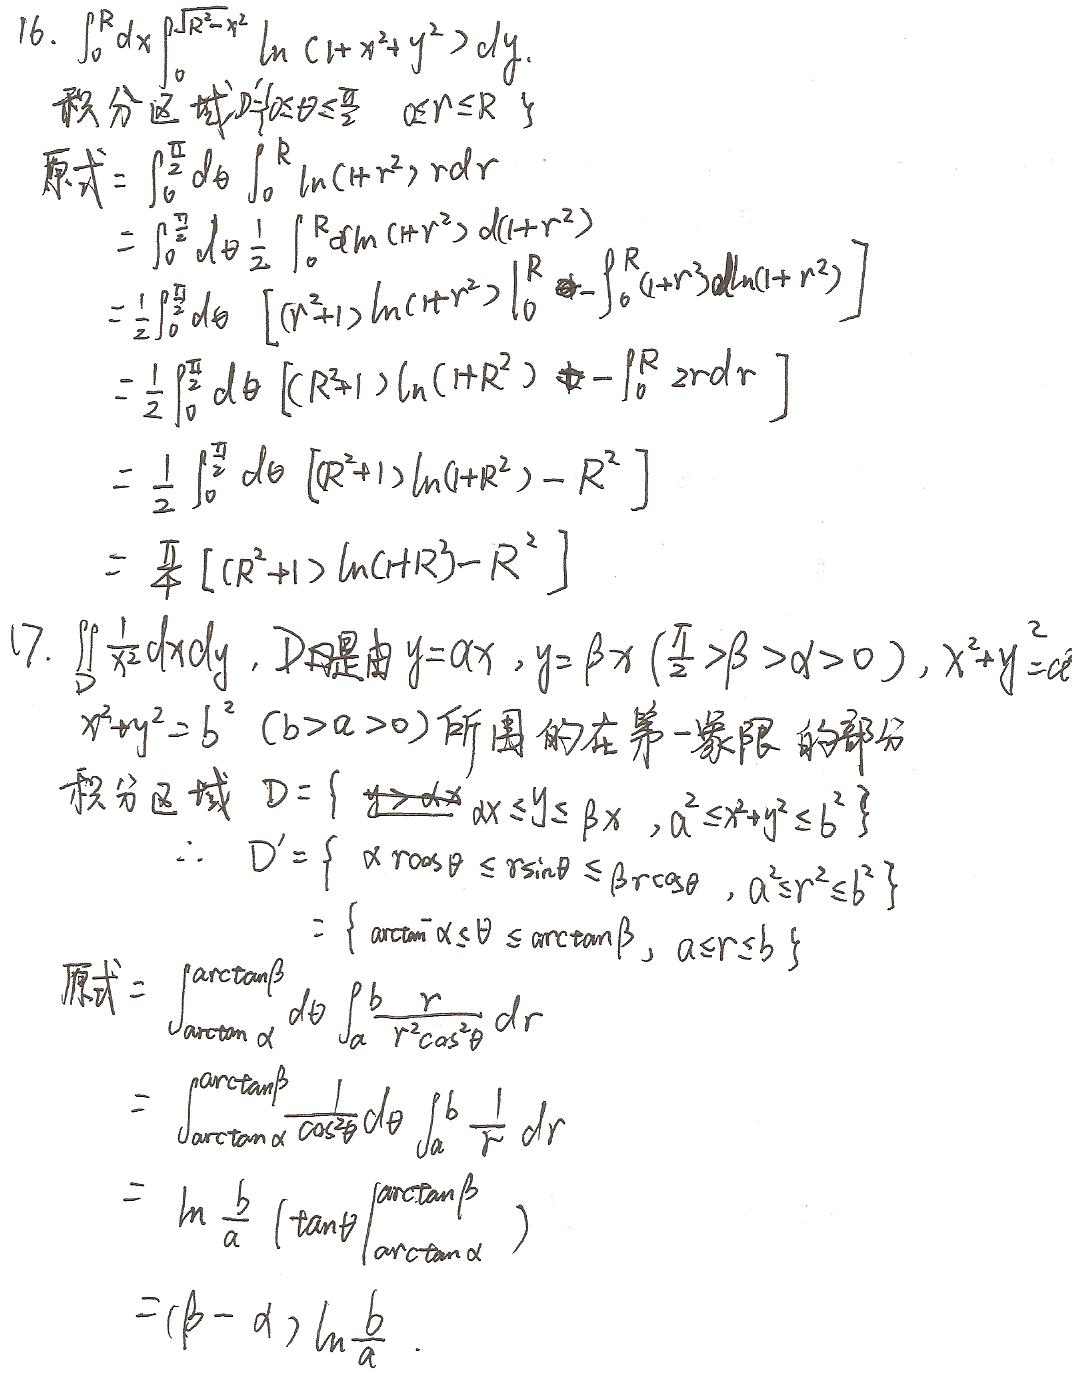 16. ∫₀^R dx ∫₀^√(R²-x²) ln(1+x²+y²)dy.
积分区域D'={0≤θ≤π/2 0≤r≤R}
原式=∫₀^(π/2) dθ ∫₀^R ln(1+r²) rdr
=∫₀^(π/2) dθ 1/2 ∫₀^R ln(1+r²) d(1+r²)
=1/2∫₀^(π/2) dθ [(r²+1)ln(1+r²)|₀^R - ∫₀^R (1+r²)dln(1+r²)]
=1/2∫₀^(π/2) dθ [(R²+1)ln(1+R²) - ∫₀^R 2rdr]
=1/2 ∫₀^(π/2) dθ [(R²+1)ln(1+R²) - R²]
=π/4 [(R²+1)ln(1+R²) - R²]
17. ∬_D 1/x² dxdy, D是由y=αx, y=βx (π/2>β>α>0), x²+y²=a²
x²+y²=b² (b>a>0)所围的在第一象限的部分
积分区域 D={ αx≤y≤βx, a²≤x²+y²≤b²}
∴ D'={ αrcosθ≤rsinθ≤βrcosθ, a²≤r²≤b²}
={ arctanα≤θ≤arctanβ, a≤r≤b}
原式=∫_(arctanα)^(arctanβ) dθ ∫_a^b r/(r²cos²θ) dr
=∫_(arctanα)^(arctanβ) 1/cos²θ dθ ∫_a^b 1/r dr
=ln b/a (tanθ|_(arctanα)^(arctanβ))
=(β-α)ln b/a.